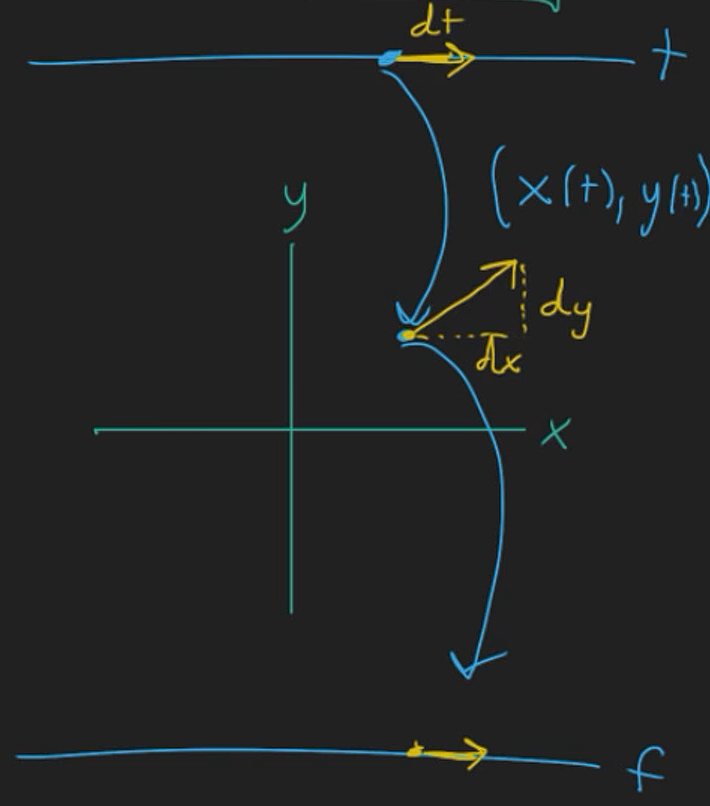 dt
t
(x(t), y(t))
y
dy
dx
x
f